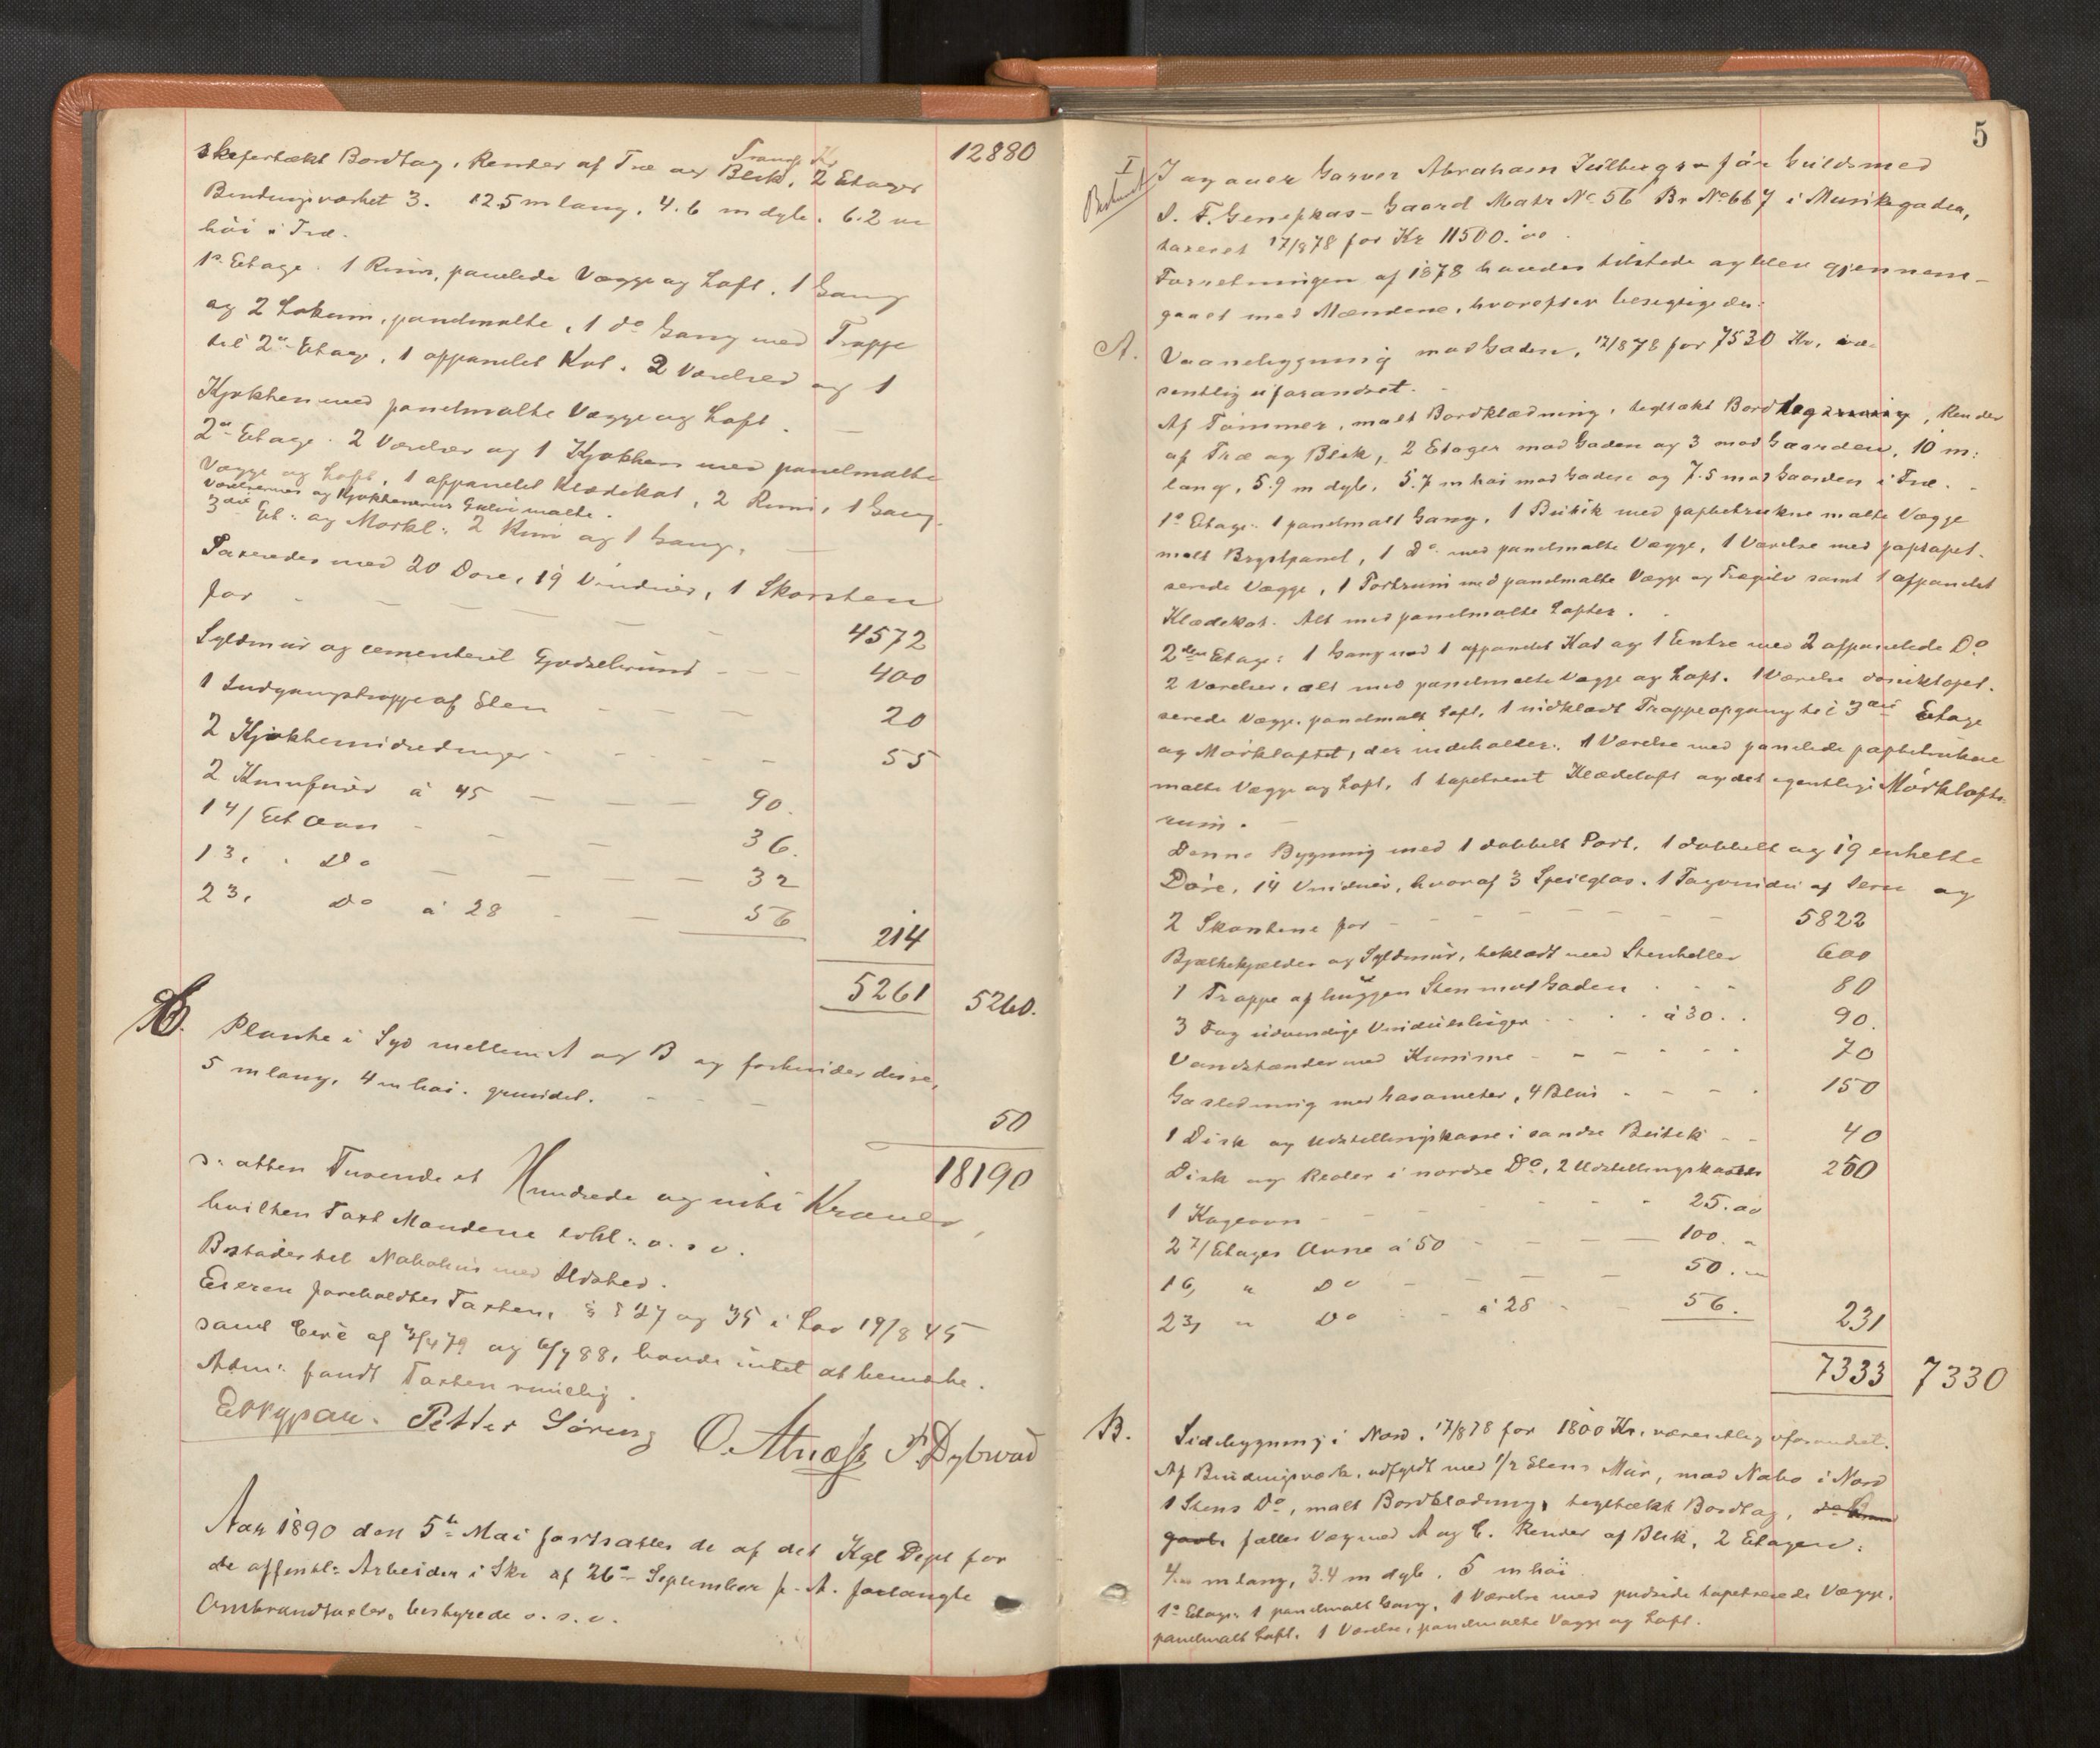 12880
skifertækt Bordtag, Render af Træ og Blik, 2 Etager
Bindingsværket 3. 12.5 m lang, 4.6 m dyb, 6.2 m
höi i Træ.
1ste Etage. 1 Rum, panelede Vægge og Loft, 1 Gang
og 2 Lokum, panelmalte, 1 do Gang med Trappe
til 2den Etage, 1 afpanelet Kot. 2 Værelser og 1
Kjøkken med panelmalte Vægge og Loft. —
2den Etage. 2 Værelser og 1 Kjøkken med panelmalte
Vægge og Loft, 1 afpanelet Klædekot, 2 Rum, 1 Gang.
Værelsernes og Kjøkkenernes Gulve malte.
3die Et: og Mørkl: 2 Rum og 1 Gang. —
Taxeredes med 20 Döre, 19 Vinduer, 1 Skorsten
for - - - - - 4572
Syldmur og cementeret Gjødselbrønd - - - 400
1 Indgangstrappe af Sten - - - 20
2 Kjøkkenindredninger - - - - 55
2 Komfurer à 45 - - - 90.
1 4/ Et Ovn - - - 36.
1 3, " Do - - - - 32
2 3, Do à 28 - - 56
214
5261 5260.
D. Planke i Syd mellem A og B og forbinder disse,
5 m lang, 4 m høi, grundet. - - -
50
18190
ɔ: atten Tusende et Hundrede og nitti Kroner,
hvilken Taxt Mændene erkl: o. s. v.
Bestader til Nabohus med Ildsted.
Eieren foreholdtes Taxten, §§ 27 og 35 i Lov 19/8 45
samt Circ af 3/4 79 og 6/7 88, havde intet at bemærke.
Adm: fandt Taxten rimelig.
Petter Søreng O. Alnæss P. Dybwad
Aar 1890 den 5te Mai fortsattes de af det Kgl Dept for
de offentl: Arbeider i Skr af 26de September f. A. forlangte
Ombrandtaxter, bestyrede o. s. v.
5
I
I og over Garver Abraham før Guldsmed
Gaard Matr No 56 Br No 667 i Munkegaden,
taxeret 17/8 78 for Kr 11500.00
Forretningen af 1878 havdes tilstede og blev gjennem-
gaaet med Mændene, hvorefter besigtigedes:
A. Vaaningsbygning mod Gaden, 17/8 78 for 7530 Kr, væ-
sentlig uforandret.
Af Tømmer, malt Bordklædning, tegltækt Bordtag, Render
af Træ og Blik, 2 Etager mod Gaden og 3 mod Gaarden, 10 m:
lang, 5.9 m dyb, 5.7 m høi mod Gaden og 7.5 mod Gaarden i Træ.
1ste Etage: 1 panelmalt Gang, 1 Butik med papbetrukne malte Vægge
malt Brystpanel, 1 Do med panelmalte Vægge, 1 Værelse med paptapet-
serede Vægge, 1 Portrum med panelmalte Vægge og Trægulv samt 1 afpanelet
Klædekot. Alt med panelmalte Lofter.
2den Etage: 1 Gang med 1 afpanelet Kot og 1 Entre med 2 afpanelede Do
2 Værelser, alt med panelmalte Vægge og Loft. 1 Værelse tapet-
serede Vægge, panelmalt Loft, 1 indklædt Trappeopgang til 3die Etage
og Mørkloftet, der indeholder: 1 Værelse med panelede papbetrukne
malte Vægge og Loft, 1 tapetseret Klædeloft og det egentlige Mørklofts-
rum. —
Denne Bygning med 1 dobbelt Port, 1 dobbelt og 19 enkelte
Døre, 14 Vinduer, hvoraf 3 Speilglas, 1 Tagvindu af Jern og
2 Skorstene for - - - - - - 5822
Bjælkekjælder og Syldmur, beklædt med Stenheller 600
1 Trappe af huggen Sten mod Gaden - - - 80
3 Fag udvendige à 30. . . 90.
Vandstænder med Kumme - - - - - 70
Gasledning med Gasometer, 4 Blus - - - 150
1 Disk og Udstillingskasse i søndre Butik - - 40
Disk og Reoler i nordre Do, 2 Udstillingskasser 250
1 Kogeovn - - - - - 25.00
2 7/ Etages Ovne à 50 - - - 100. "
1 6, " Do - - - - 50. "
2 3, " Do - à 28 - - 56.
231
7333 7330
B. Sidebygning i Nord, 17/8 78 for 1800 Kr, væsentlig uforandret.
Af Bindingsværk, udfyldt med 1/2 Stens Mur, mod Nabo i Nord
1 Stens Do, malt Bordklædning, tegltækt Bordtag,
fælles Væg med A og C. Render af Blik, 2 Etager:
4 m lang, 3.4 m dyb, 5 m høi
1ste Etage: 1 panelmalt Gang, 1 Værelse med pudsede tapetserede Vægge,
panelmalt Loft. 1 Værelse, panelmalte Vægge og Loft.